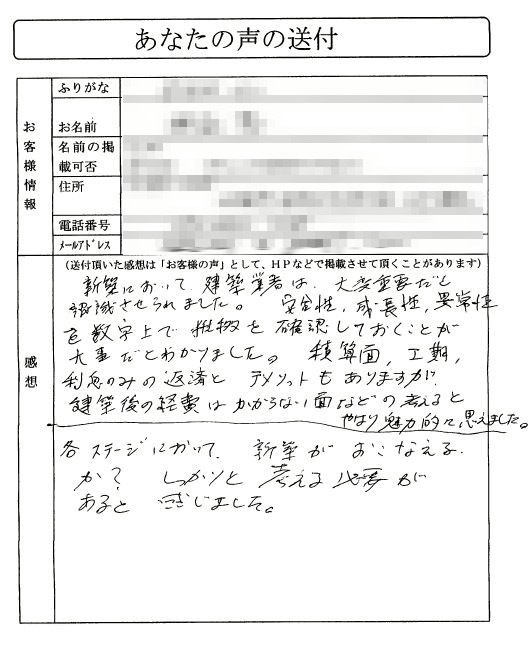 あなたの声の送付
お客様情報
ふりがな
お名前
名前の掲載可否
住所
電話番号
メールアドレス
感想
(送付頂いた感想は「お客様の声」として、HPなどで掲載させて頂くことがあります)
新築において、建築業者は、大変重要だと
認識させられました。 安全性,成長性,異常性
を数字上で推移を確認しておくことが
大事だとわかりました。 積算面,工期,
利息のみの返済と デメリットもありますが
建築後の経費はかからない面などの考えると
やはり魅力的に思えました。
各ステージにおいて、新築がおこなえる
か? しっかりと考える必要が
あると感じました。